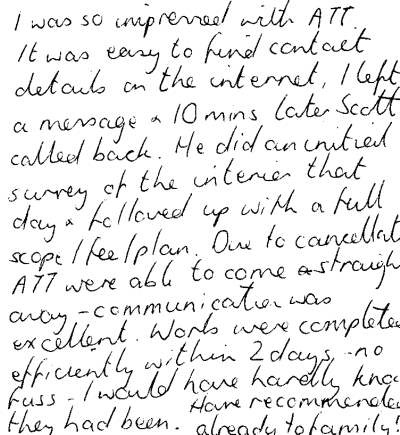 I was so impressed with ATT.
It was easy to find contact
details on the internet, I left
a message & 10 mins later Scott
called back. He did an initial
survey of the interior that
day & followed up with a full
scope/fee/plan. Due to cancellat
ATT were able to come straigh
away - communication was
excellent. Works were complete
efficiently within 2 days, no
fuss - I would have hardly kno
they had been. Have recommende
already to family!